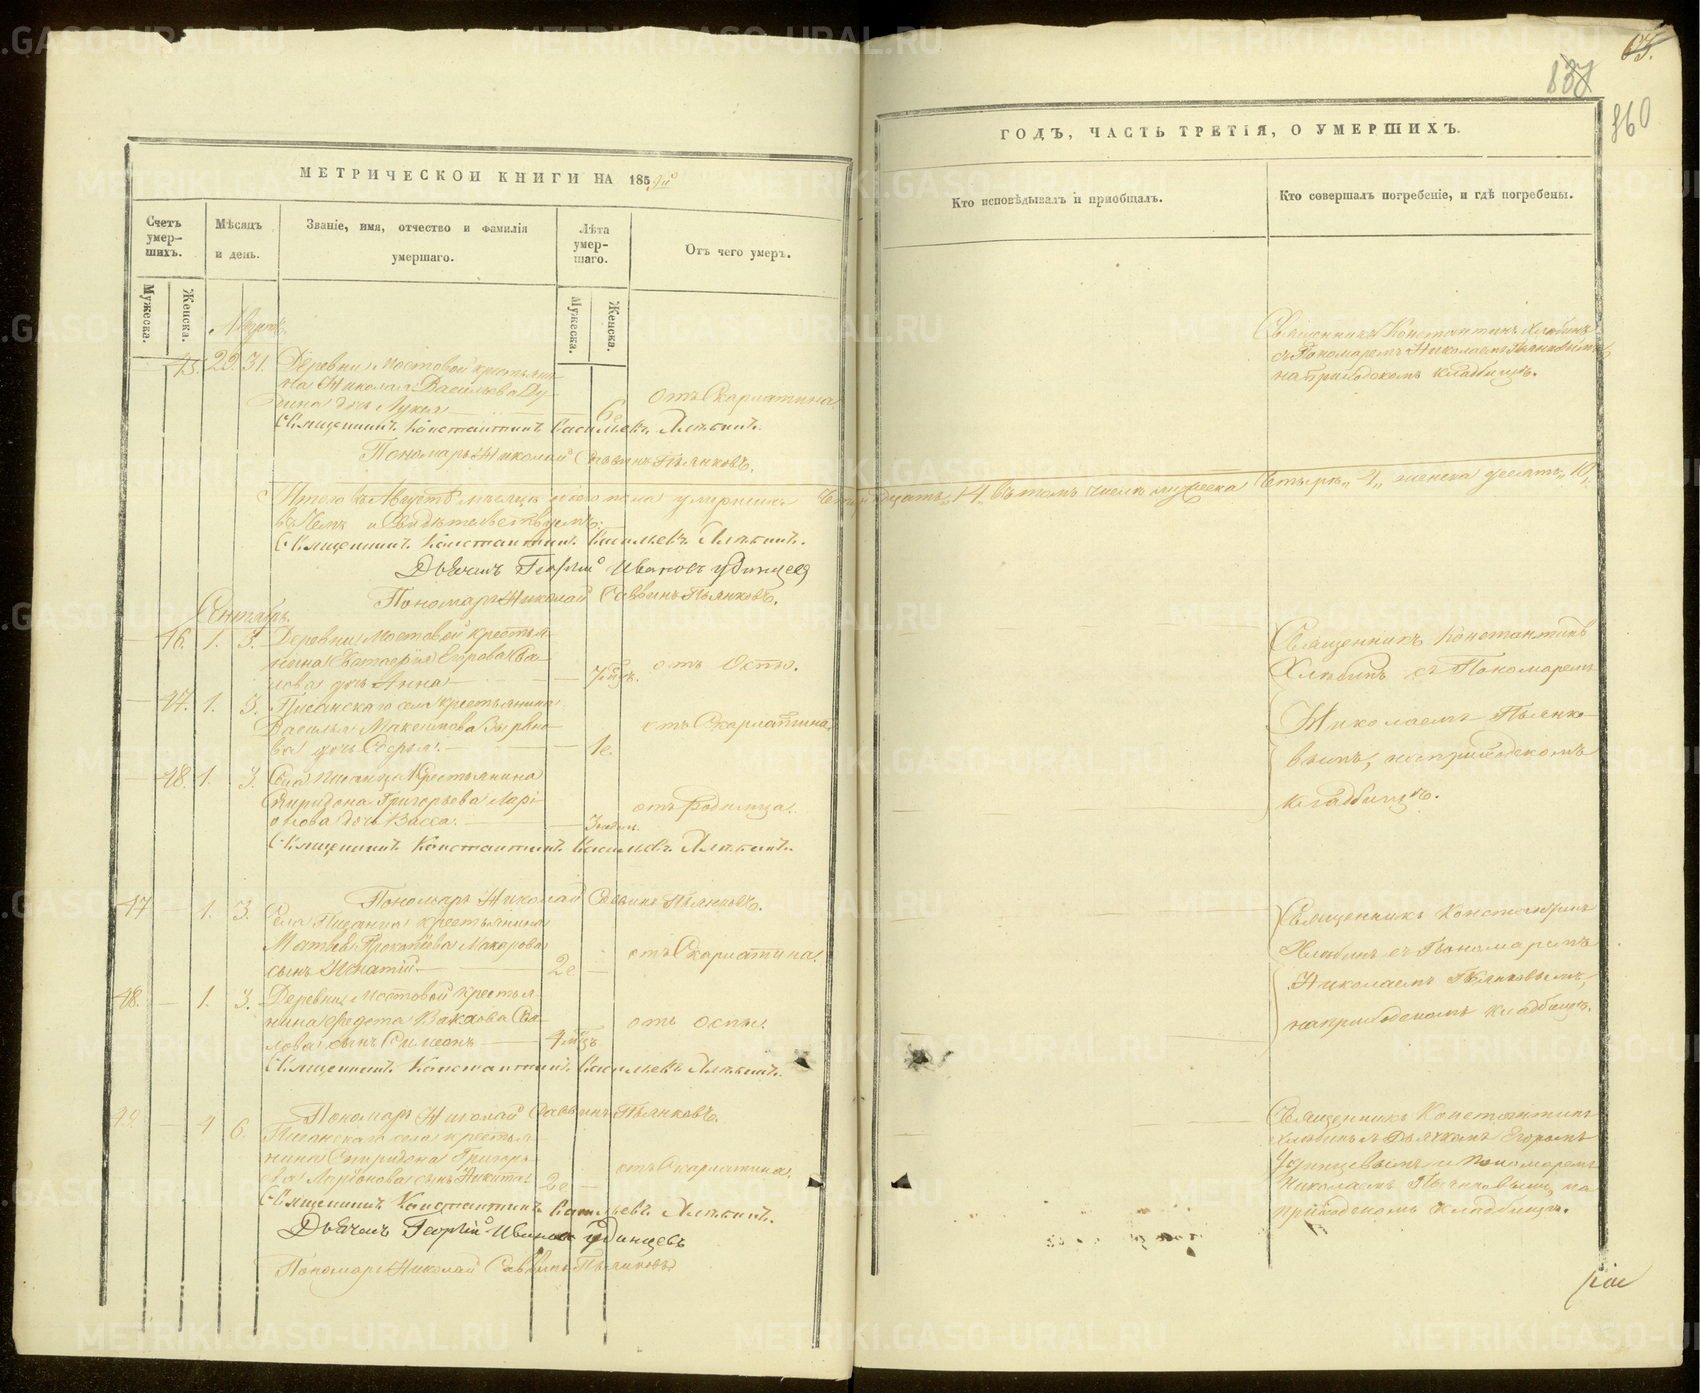 МЕТРИЧЕСКОЙ КНИГИ НА 185
Счетъ умер-шихъ.
Мѣсяцъ и день.
Званіе, имя, отчество и фамилія умершаго.
Лѣта умер-шаго.
Отъ чего умеръ.
Мужеска.
Женска.
Мужеска.
Женска.
Августъ
45. 29. 31. Деревни Мостовой крестьяни-
на Николая Васильева
дочь
отъ Скарлатина
Священникъ Константинъ Васильевъ Хлѣбинъ.
Пономарь Николай Саввинъ Пьянковъ.
Итого въ Августѣ мѣсяцѣ сего года умершихъ четырнадцать „14„ въ томъ числѣ мужеска четыре „4„ женска десять „10„
въ чемъ и свидѣтельствуемъ:
Священникъ Константинъ Васильевъ Хлѣбинъ.
Дьячекъ Георгій Ивановъ Удинцевъ
Пономарь Николай Саввинъ Пьянковъ.
Сентябрь.
46. 1. 3. Деревни Мостовой крестья-
нина Евстафія Егорова
дочь Анна
отъ Оспы.
47. 1. 3. Писанскаго села крестьянина
Василья Максимова
дочь
1г.
отъ Скарлатина.
48. 1. 3. Села Писанца крестьянина
Спиридона Григорьева Ларі-
онова дочь Васса.
3 недѣл.
отъ родимца.
Священникъ Константинъ Васильевъ Хлѣбинъ.
Пономарь Николай Саввинъ Пьянковъ.
47 1. 3. Села Писанца крестьянина
Матвѣя Прокопьева Макарова
сынъ Игнатій.
2г
отъ Скарлатина.
48. 1. 3. Деревни Мостовой крестья-
нина Федота
сынъ Симеонъ
4 мѣ
отъ оспы.
Священникъ Константинъ Васильевъ Хлѣбинъ.
Пономарь Николай Саввинъ Пьянковъ.
49. 4 6. Писанскаго села крестья-
нина Спиридона Григорь-
ева Ларіонова сынъ Никита
2г
отъ Скарлатина.
Священникъ Константинъ Васильевъ Хлѣбинъ.
Дьячекъ Георгій Ивановъ Удинцевъ
Пономарь Николай Саввинъ Пьянковъ
65.
137
860
ГОДЪ, ЧАСТЬ ТРЕТІЯ, О УМЕРШИХЪ.
Кто исповѣдывалъ и пріобщалъ.
Кто совершалъ погребеніе, и гдѣ погребены.
Священникъ Константинъ Хлѣбинъ
съ Пономаремъ Николаемъ Пьянковымъ,
на приходскомъ кладбищѣ.
Священникъ Константинъ
Хлѣбинъ съ Пономаремъ
Николаемъ Пьянко-
вымъ, на приходскомъ
кладбищѣ.
Священникъ Константинъ
Хлѣбинъ съ Пономаремъ
Николаемъ Пьянковымъ,
на приходскомъ кладбищѣ.
Священникъ Константинъ
Хлѣбинъ съ Дьячкомъ Егоромъ
Удинцевымъ и Пономаремъ
Николаемъ Пьянковымъ, на
приходскомъ кладбищѣ.
METRIKI.GASO-URAL.RU